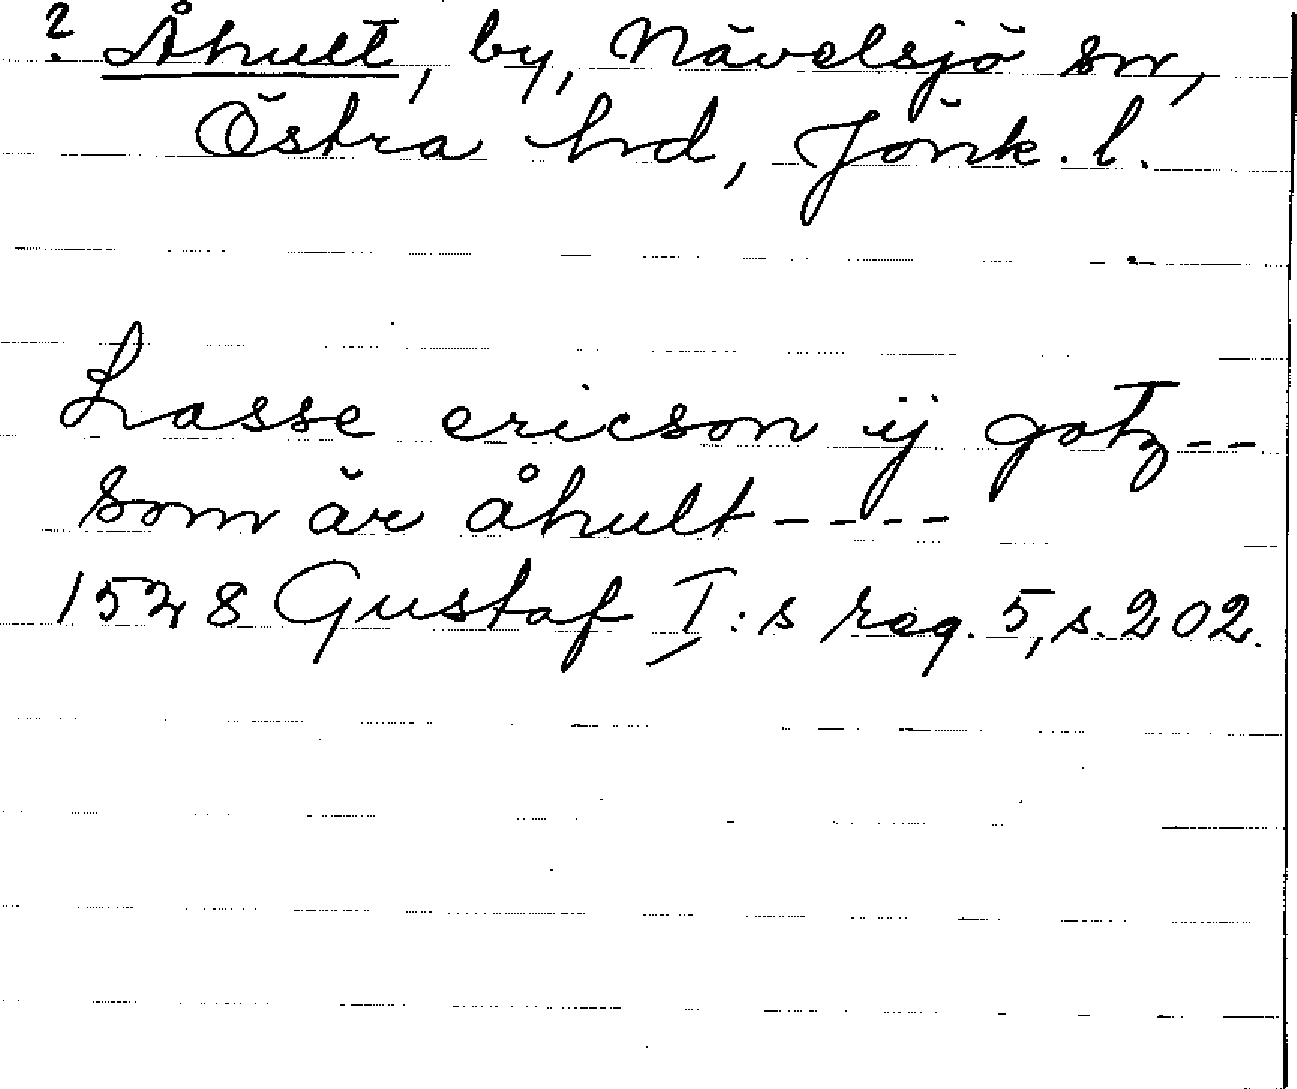 ? Åhult, by, Nävelsjö sn,
Östra hd, Jönk. l.
Lasse ericson ij gotz--
som är åhult----
1528 Gustaf I:s reg. 5, s. 202.